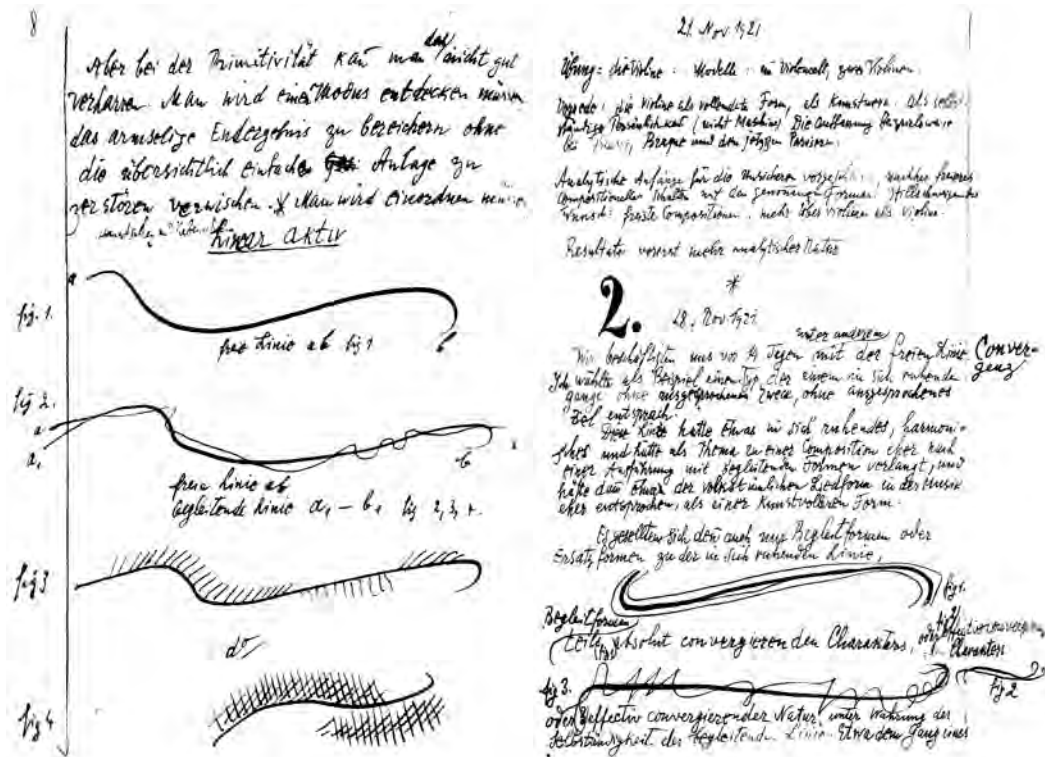 8
Aber bei der Primitivität kañ man das nicht gut
verharren. Man wird einen Modus entdecken müssen
das armselige Endergebnis zu bereichern ohne
die übersichtlich einfache Anlage zu
zerstören verwischen. * Man wird einordnen müssen
Linear aktiv
a
fig. 1.
freie Linie ab fig 1
b
fig 2.
a
a1
b
freie Linie ab
begleitende Linie a1 – b1 fig 2, 3, 4.
fig 3
do
fig 4
21. Nov. 1921
Übung: die Violine. Modelle: ein Violoncell, zwei Violinen.
Vorrede: die Violine als vollendete Form, als Kunstwerk. Als selbst-
ständige Persönlichkeit (nicht Maschine) Die Auffassung beispielsweise
bei Braque und den jetzigen Parisern.
Analytische Anfänge für die unsicheren nachher freieres
compositionelles Schalten mit den gewonnenen Formen. Stillschweigender
Wunsch: freiste Compositionen. mehr über Violinen als Violine.
Resultate vorerst mehr analytischer Natur
*
2.
28. Nov. 1921.
unter anderem
Wir beschäftigten uns vor 14 Tagen mit der freien Linie. Conver-
genz
Ich wählte als Beispiel einen Typ der einem in sich ruhenden
gange ohne ausgesprochenen Zweck, ohne ausgesprochenes
Ziel entsprach.
Diese Linie hatte etwas in sich ruhendes, harmoni-
sches und hätte als Thema zu einer Composition eher nach
einer Ausführung mit begleitenden Formen verlangt, und
hätte dañ etwa der volkstümlichen Liedform in der Musik
eher entsprochen, als einer Kunstvolleren Form.
Es gesellten sich deñ auch nun Begleitformen oder
Ersatzformen zu der in sich ruhenden Linie,
fig 1.
Begleitformen
Teils absolut convergierenden Charakters, oder
Charakters
fig 3.
fig 2
oder effectiv convergierender Natur, unter Wahrung der
Selbständigkeit der begleitenden Linie. Etwa dem Gang eines